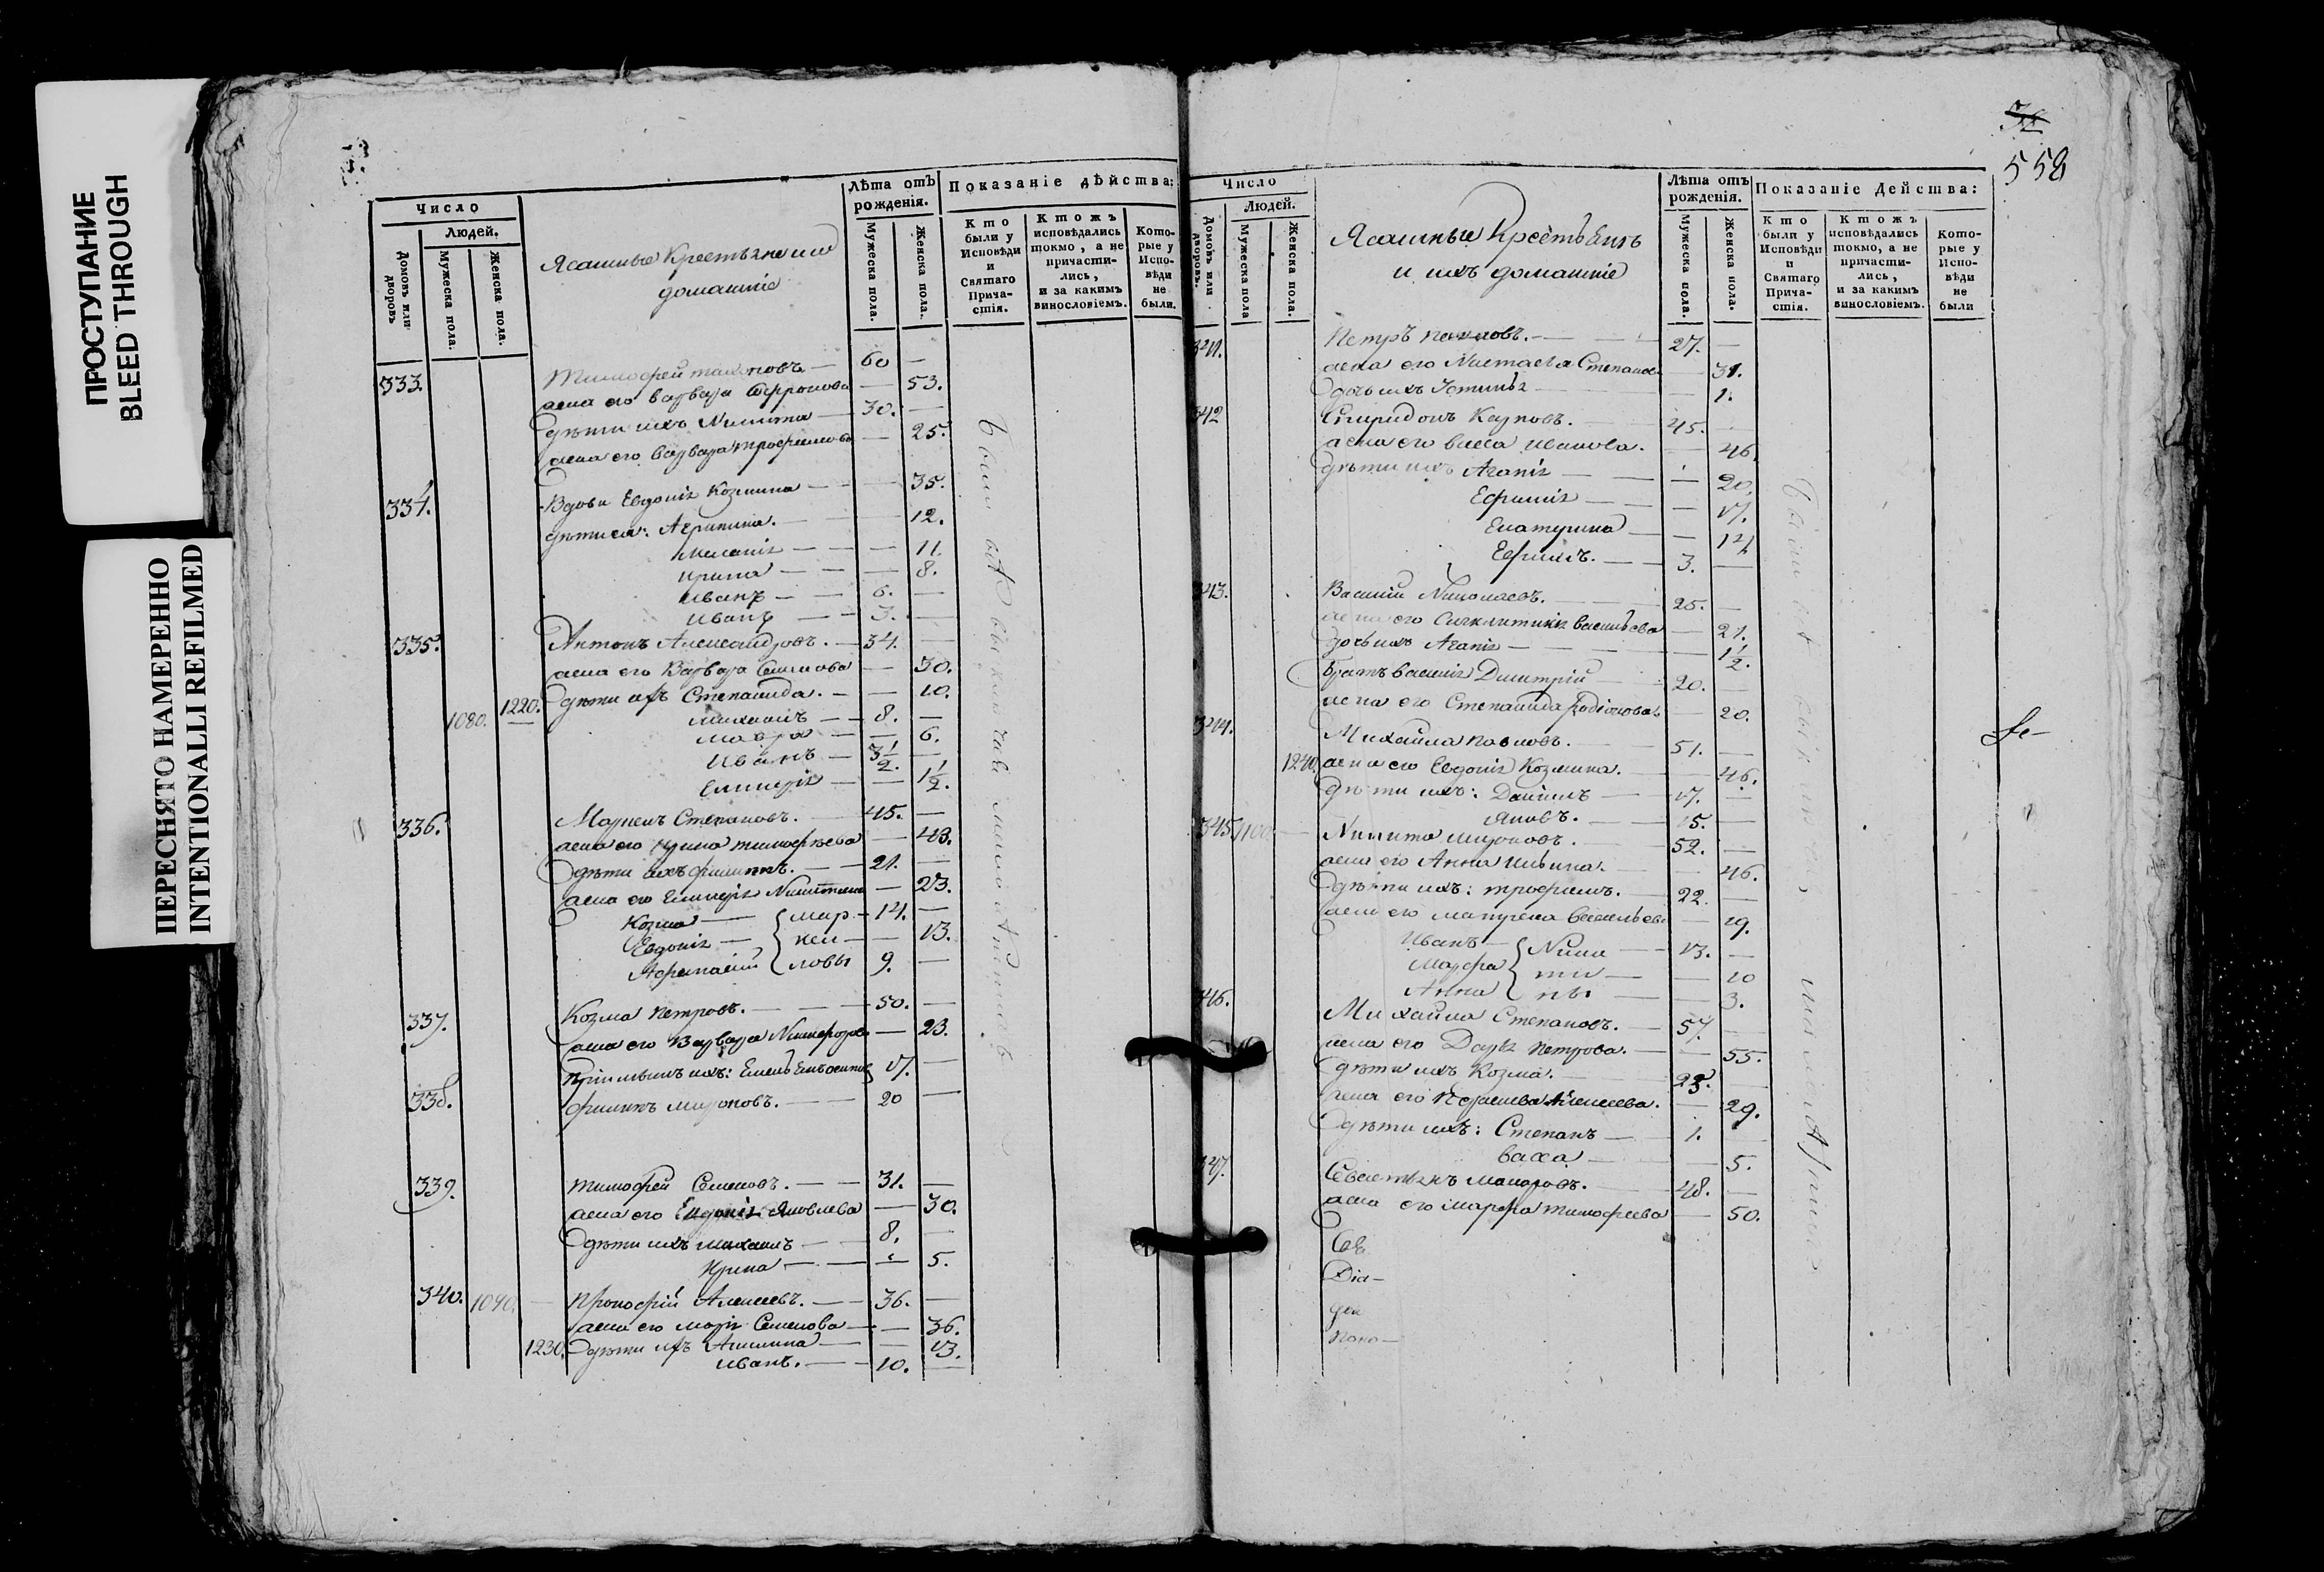 ПРОСТУПАНИЕ
BLEED THROUGH
ПЕРЕСНЯТО НАМЕРЕННО
INTENTIONALLI REFILMED
Число
Людей.
Домовъ или дворовъ
Мужеска пола.
Женска пола.
Ясашные Крестьяне и их
домашніе
Лѣта отъ
рожденія.
Мужеска пола.
Женска пола.
Показаніе дѣйства:
Кто
были у
Исповѣди
и
Святаго
Прича-
стія.
Ктожъ
исповѣдались
токмо, а не
причасти-
лись,
и за какимъ
винословіемъ.
Кото-
рые у
Испо-
вѣди
не
были.
333. Тимофей 60 —
жена его Варвара Софронова — 53.
дѣти ихъ Никита 30. —
жена его Варвара трофимова — 25.
334. Вдова Евдокія Козмина — 35.
дѣти ея: Агрипина. — 12.
Меланія — 11.
ирина — 8.
иванъ — 6. —
иванъ — 3. —
335. Антонъ Александровъ. — 34. —
жена его Варвара Семенова — 30.
1080. 1220. дѣти ихъ Степанида. — 10.
михаилъ — 8. —
мавра — 6.
Иванъ — 3 1/2. —
Гликерія — 1 1/2.
336. Маркелъ Степановъ. 45. —
жена его ирина тимофѣева — 43.
дѣти ихъ филиппъ. — 21. —
жена его Гликерія Никитина — 23.
Козма — мар- 14. —
Евдокія — кел — 13.
Афанасій ловы 9. —
337. Козма петровъ. — 50. —
жена его Варвара Никифорова — 23.
17. —
338. филипъ мироновъ. — 20 —
339. тимофей Семеновъ. — 31. —
жена его Евдокія Яковлева — 30.
дѣти ихъ михаилъ — 8. —
Ирина — 5.
340. 1090. прокофій Алексеевъ. — 36. —
жена его марія Семенова — — 36.
1230. дѣти ихъ Акилина — 13.
иванъ. — 10. —
558
Число
Людей.
Домовъ или дворовъ.
Мужеска пола
Женска пола.
Ясашные Крестьянъ
и ихъ домашніе
Лѣта отъ
рожденія.
Мужеска пола.
Женска пола.
Показаніе Действа:
Кто
были у
Исповѣди
и
Святаго
Прича-
стія.
Ктожъ
исповѣдались
токмо, а не
причасти-
лись,
и за какимъ
винословіемъ.
Кото-
рые у
Испо-
вѣди
не
были
341. Петръ 27. —
жена его Настасья Степанова — 31.
дочь ихъ Устинья — 1.
342 Спиридонъ Карповъ. 45. —
жена его васса иванова. — 46.
дѣти ихъ Агапія — 20.
Ефимія — 17.
Екатерина — 14
Ефимъ. — 3. —
343. Василій Николаевъ. 25. —
жена его Сигклитикія васильева — 21.
дочь ихъ Агапія — 1 1/2.
братъ василія Дмитрій 20. —
жена его Степанида Родіонова — 20.
344. Михайла павловъ. 51. —
1240. жена его Евдокія Козмина. — 46.
дѣти ихъ: Даніилъ — 17. —
яковъ. — 15. —
345 1100 Никита мироновъ. 52. —
жена его Анна ильина. — 46.
дѣти ихъ: трофимъ. — 22. —
жена его матрена васильева — 19.
Иванъ — Ники — 13. —
Марфа ти — 10
Анна ны — 3.
346. Михайла Степановъ. 57. —
жена его Дарья петрова. — 55.
дѣти ихъ Козма. 23. —
жена его Алексеева. — 29.
дѣти ихъ: Степанъ — 1. —
васса — 5.
347. Севастьянъ макаровъ. 48. —
жена его марфа тимофеева — 50.
Діа-